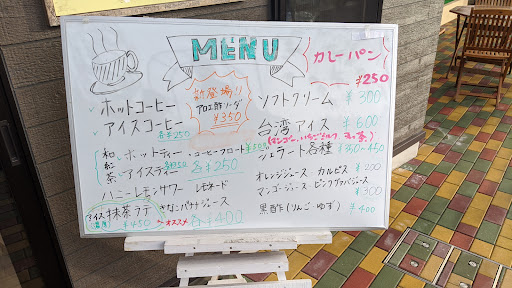 MENU
カレーパン
¥250
新登場!!
アロエ酢ソーダ
¥350
ホットコーヒー
アイスコーヒー
各¥250
ソフトクリーム ¥300
台湾アイス ¥600
(マンゴー、いちごミルク
ジェラート各種 350-450
和紅茶
ホットティー
・コーヒーフロート ¥500
アイスティー 各¥250
ハニーレモンサワー レモネード
きなこバナナジュース
アイス 抹茶ラテ
¥450 オススメ 各¥400
オレンジジュース カルピス ¥200
マンゴージュース ピンクグァバジュース ¥300
黒酢(りんご・ゆず) ¥400